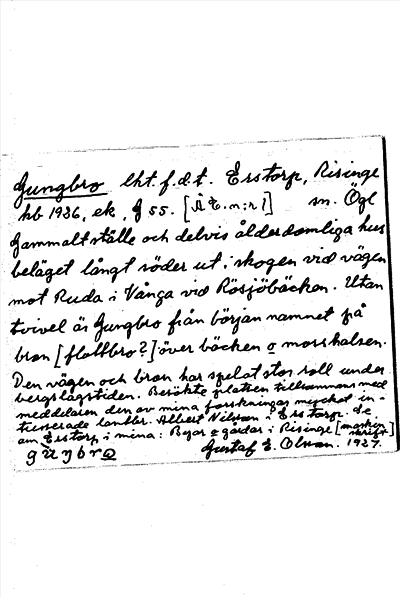 Gungbro lht. f.d.t. Erstorp, Risinge
hb 1936, ek, G 55. [Å T. n:r 1] sn. Ögl
Gammalt ställe och delvis ålderdomliga hus
beläget långt söder ut i skogen vid vägen
mot Ruda i Vånga vid Rösjöbäcken. Utan
tvivel är Gungbro från början namnet på
bron [flottbro?] över bäcken o mosshalsen.
Den vägen och bron har spelat stor roll under
bergslagstiden. Besökte platsen tillsammans med
meddelaren den av mina forskningar mycket in-
tresserade lantbr. Albert Nilsson i Erstorp. Se
om Erstorp i mina: Byar o gårdar i Risinge [maskin
skrift]
Gustaf E. Olsson. 1937.